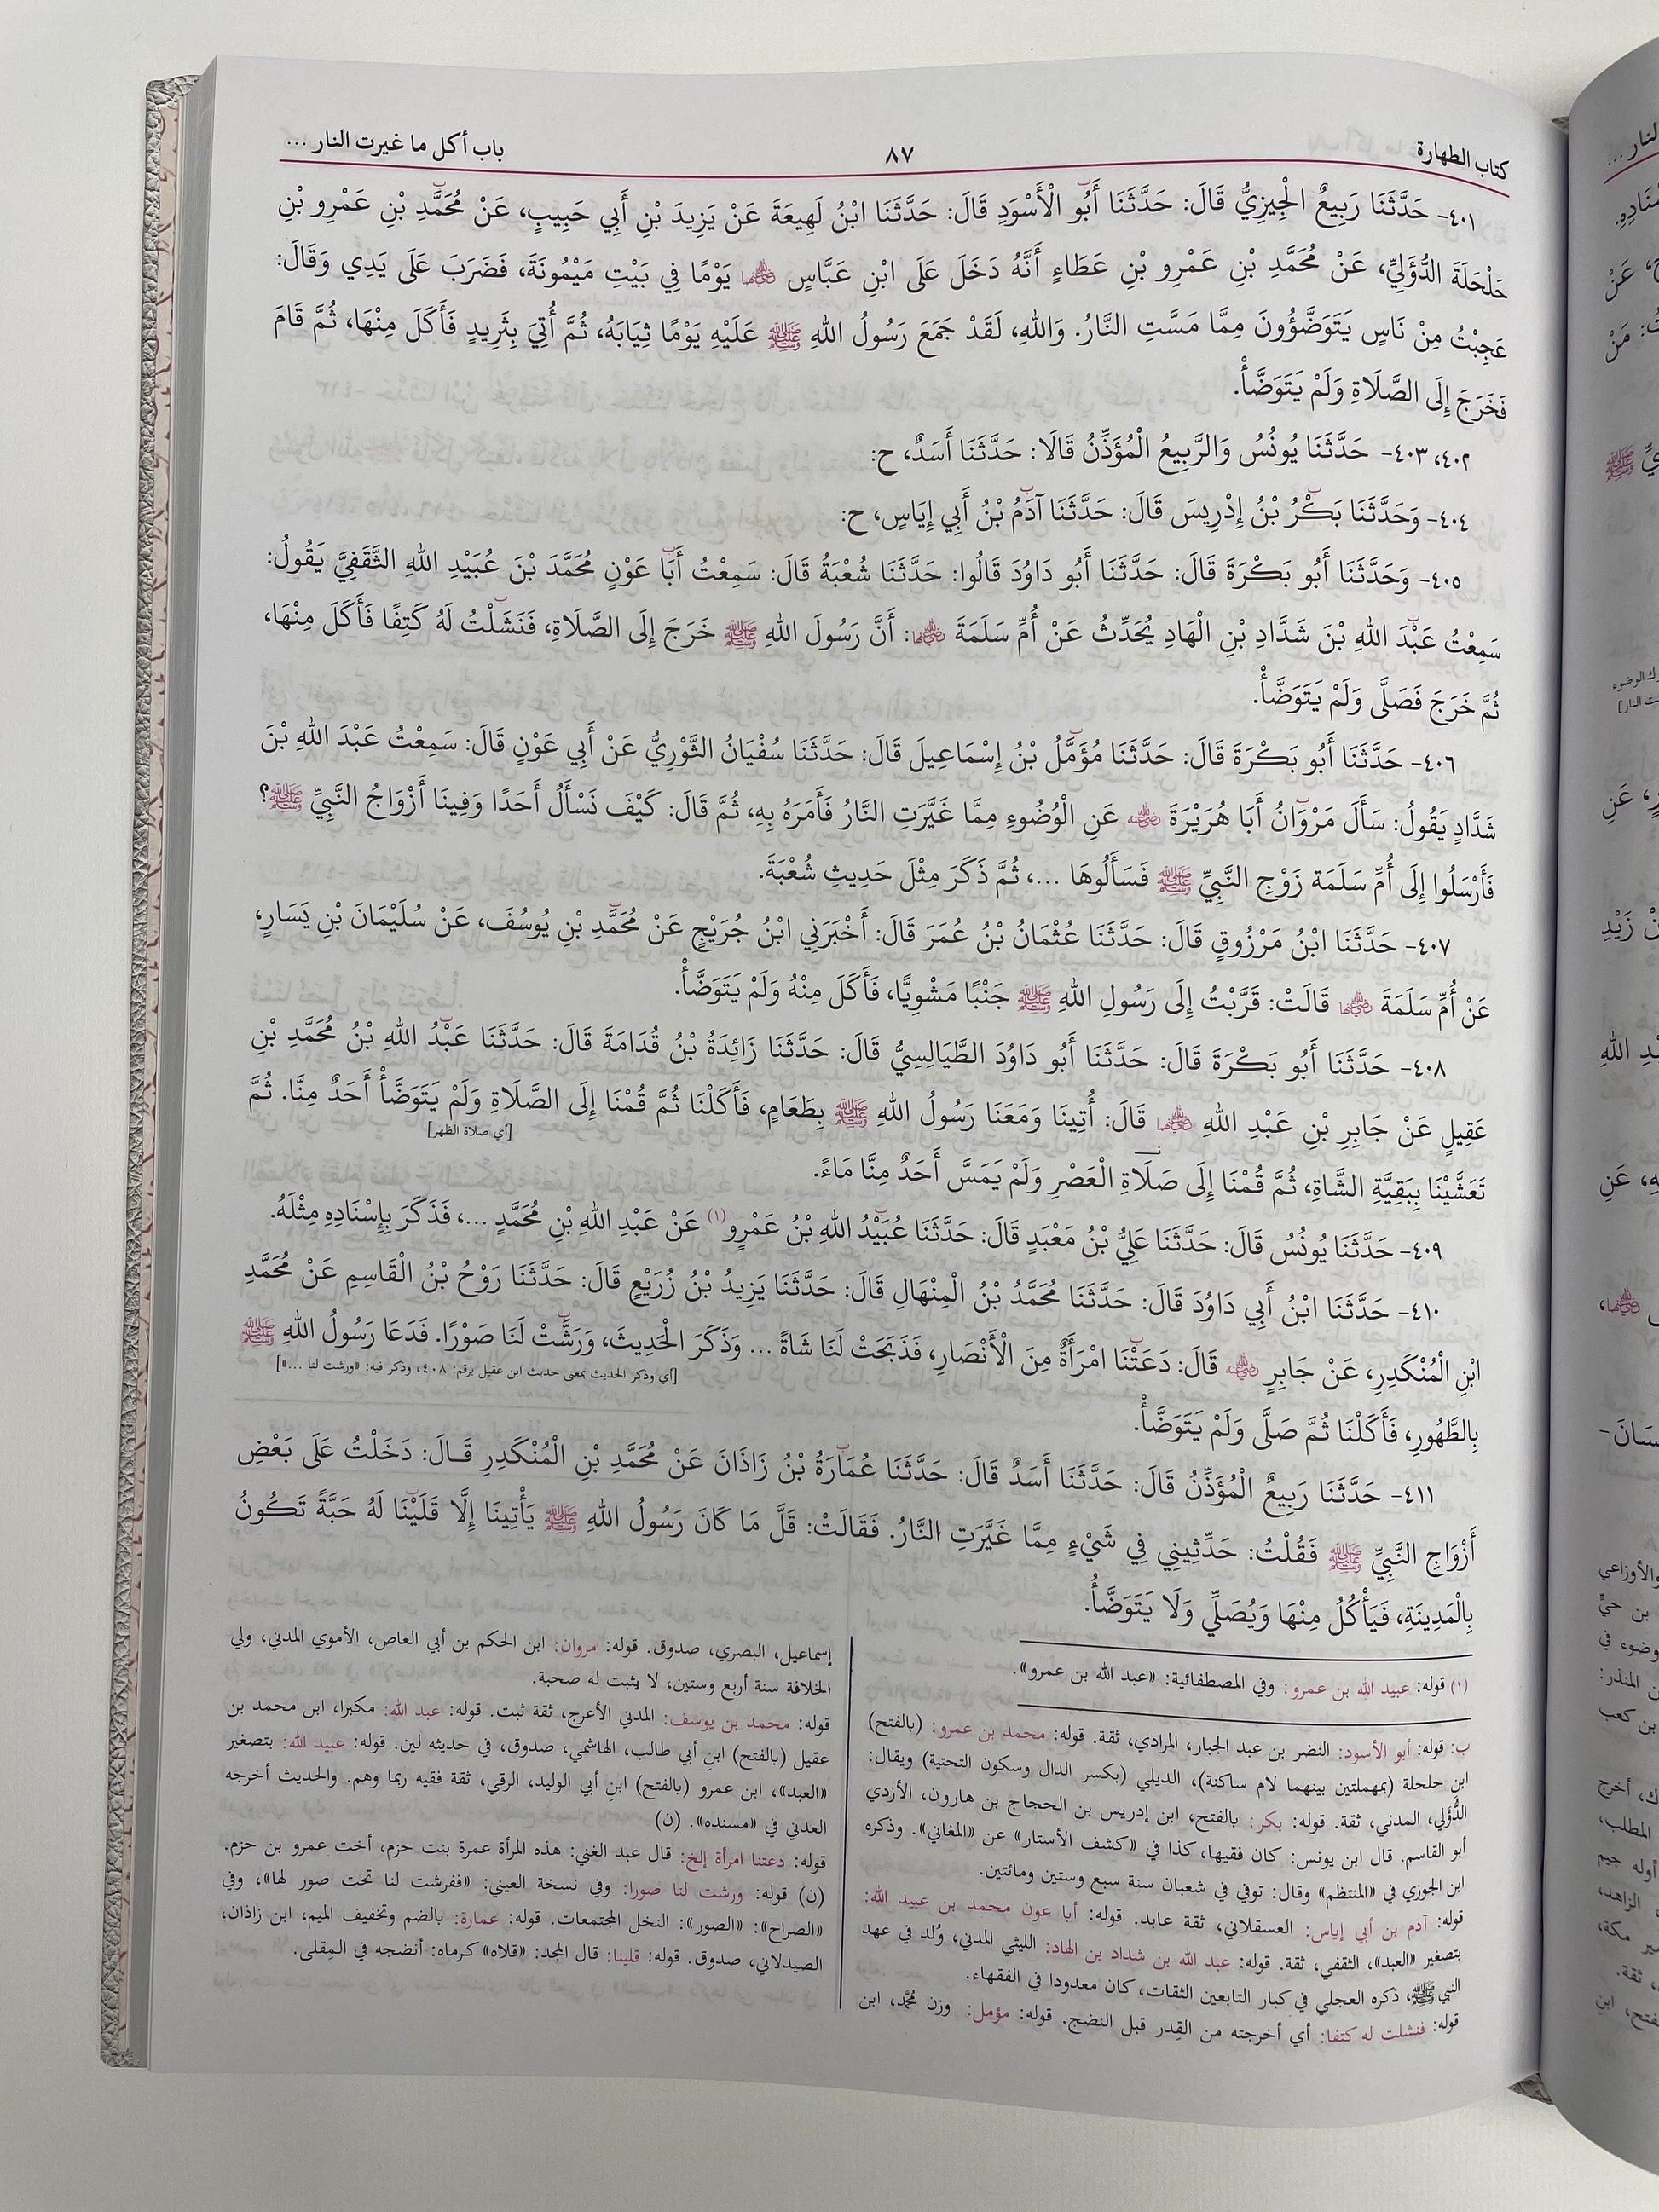 كتاب الطهارة ٨٧ باب أكل ما غيرت النار ...
٤٠١- حَدَّثَنَا رَبِيعٌ الْجِيزِيُّ قَالَ: حَدَّثَنَا أَبُو الْأَسْوَدِ قَالَ: حَدَّثَنَا ابْنُ لَهِيعَةَ عَنْ يَزِيدَ بْنِ أَبِي حَبِيبٍ، عَنْ مُحَمَّدِ بْنِ عَمْرِو بْنِ
حَلْحَلَةَ الدُّؤَلِيِّ، عَنْ مُحَمَّدِ بْنِ عَمْرِو بْنِ عَطَاءٍ أَنَّهُ دَخَلَ عَلَى ابْنِ عَبَّاسٍ ﵄ يَوْمًا فِي بَيْتِ مَيْمُونَةَ، فَضَرَبَ عَلَى يَدِي وَقَالَ:
عَجِبْتُ مِنْ نَاسٍ يَتَوَضَّؤُونَ مِمَّا مَسَّتِ النَّارُ. وَاللهِ، لَقَدْ جَمَعَ رَسُولُ اللهِ ﷺ عَلَيْهِ يَوْمًا ثِيَابَهُ، ثُمَّ أُتِيَ بِثَرِيدٍ فَأَكَلَ مِنْهَا، ثُمَّ قَامَ
فَخَرَجَ إِلَى الصَّلَاةِ وَلَمْ يَتَوَضَّأْ.
٤٠٢، ٤٠٣- حَدَّثَنَا يُونُسُ وَالرَّبِيعُ الْمُؤَذِّنُ قَالَا: حَدَّثَنَا أَسَدٌ، ح:
٤٠٤- وَحَدَّثَنَا بَكْرُ بْنُ إِدْرِيسَ قَالَ: حَدَّثَنَا آدَمُ بْنُ أَبِي إِيَاسٍ، ح:
٤٠٥- وَحَدَّثَنَا أَبُو بَكْرَةَ قَالَ: حَدَّثَنَا أَبُو دَاوُدَ قَالُوا: حَدَّثَنَا شُعْبَةُ قَالَ: سَمِعْتُ أَبَا عَوْنٍ مُحَمَّدَ بْنَ عُبَيْدِ اللهِ الثَّقَفِيَّ يَقُولُ:
سَمِعْتُ عَبْدَ اللهِ بْنَ شَدَّادِ بْنِ الْهَادِ يُحَدِّثُ عَنْ أُمِّ سَلَمَةَ ﵂: أَنَّ رَسُولَ اللهِ ﷺ خَرَجَ إِلَى الصَّلَاةِ، فَنَشَلْتُ لَهُ كَتِفًا فَأَكَلَ مِنْهَا،
ثُمَّ خَرَجَ فَصَلَّى وَلَمْ يَتَوَضَّأْ.
٤٠٦- حَدَّثَنَا أَبُو بَكْرَةَ قَالَ: حَدَّثَنَا مُؤَمَّلُ بْنُ إِسْمَاعِيلَ قَالَ: حَدَّثَنَا سُفْيَانُ الثَّوْرِيُّ عَنْ أَبِي عَوْنٍ قَالَ: سَمِعْتُ عَبْدَ اللهِ بْنَ
شَدَّادٍ يَقُولُ: سَأَلَ مَرْوَانُ أَبَا هُرَيْرَةَ ﵁ عَنِ الْوُضُوءِ مِمَّا غَيَّرَتِ النَّارُ فَأَمَرَهُ بِهِ، ثُمَّ قَالَ: كَيْفَ نَسْأَلُ أَحَدًا وَفِينَا أَزْوَاجُ النَّبِيِّ ﷺ؟
فَأَرْسَلُوا إِلَى أُمِّ سَلَمَةَ زَوْجِ النَّبِيِّ ﷺ فَسَأَلُوهَا ...، ثُمَّ ذَكَرَ مِثْلَ حَدِيثِ شُعْبَةَ.
٤٠٧- حَدَّثَنَا ابْنُ مَرْزُوقٍ قَالَ: حَدَّثَنَا عُثْمَانُ بْنُ عُمَرَ قَالَ: أَخْبَرَنِي ابْنُ جُرَيْجٍ عَنْ مُحَمَّدِ بْنِ يُوسُفَ، عَنْ سُلَيْمَانَ بْنِ يَسَارٍ،
عَنْ أُمِّ سَلَمَةَ ﵂ قَالَتْ: قَرَّبْتُ إِلَى رَسُولِ اللهِ ﷺ جَنْبًا مَشْوِيًّا، فَأَكَلَ مِنْهُ وَلَمْ يَتَوَضَّأْ.
٤٠٨- حَدَّثَنَا أَبُو بَكْرَةَ قَالَ: حَدَّثَنَا أَبُو دَاوُدَ الطَّيَالِسِيُّ قَالَ: حَدَّثَنَا زَائِدَةُ بْنُ قُدَامَةَ قَالَ: حَدَّثَنَا عَبْدُ اللهِ بْنُ مُحَمَّدِ بْنِ
عَقِيلٍ عَنْ جَابِرِ بْنِ عَبْدِ اللهِ ﵄ قَالَ: أُتِينَا وَمَعَنَا رَسُولُ اللهِ ﷺ بِطَعَامٍ، فَأَكَلْنَا ثُمَّ قُمْنَا إِلَى الصَّلَاةِ وَلَمْ يَتَوَضَّأْ أَحَدٌ مِنَّا. ثُمَّ
[أي صلاة الظهر]
تَعَشَّيْنَا بِبَقِيَّةِ الشَّاةِ، ثُمَّ قُمْنَا إِلَى صَلَاةِ الْعَصْرِ وَلَمْ يَمَسَّ أَحَدٌ مِنَّا مَاءً.
٤٠٩- حَدَّثَنَا يُونُسُ قَالَ: حَدَّثَنَا عَلِيُّ بْنُ مَعْبَدٍ قَالَ: حَدَّثَنَا عُبَيْدُ اللهِ بْنُ عَمْرٍو(١) عَنْ عَبْدِ اللهِ بْنِ مُحَمَّدٍ ...، فَذَكَرَ بِإِسْنَادِهِ مِثْلَهُ.
٤١٠- حَدَّثَنَا ابْنُ أَبِي دَاوُدَ قَالَ: حَدَّثَنَا مُحَمَّدُ بْنُ الْمِنْهَالِ قَالَ: حَدَّثَنَا يَزِيدُ بْنُ زُرَيْعٍ قَالَ: حَدَّثَنَا رَوْحُ بْنُ الْقَاسِمِ عَنْ مُحَمَّدِ
ابْنِ الْمُنْكَدِرِ، عَنْ جَابِرٍ ﵁ قَالَ: دَعَتْنَا امْرَأَةٌ مِنَ الْأَنْصَارِ، فَذَبَحَتْ لَنَا شَاةً ... وَذَكَرَ الْحَدِيثَ، وَرَشَّتْ لَنَا صَوْرًا. فَدَعَا رَسُولُ اللهِ ﷺ
[أي وذكر الحديث بمعنى حديث ابن عقيل برقم: ٤٠٨، وذكر فيه: «ورشت لنا ...»]
بِالطَّهُورِ، فَأَكَلْنَا ثُمَّ صَلَّى وَلَمْ يَتَوَضَّأْ.
٤١١- حَدَّثَنَا رَبِيعٌ الْمُؤَذِّنُ قَالَ: حَدَّثَنَا أَسَدٌ قَالَ: حَدَّثَنَا عُمَارَةُ بْنُ زَاذَانَ عَنْ مُحَمَّدِ بْنِ الْمُنْكَدِرِ قَالَ: دَخَلْتُ عَلَى بَعْضِ
أَزْوَاجِ النَّبِيِّ ﷺ فَقُلْتُ: حَدِّثِينِي فِي شَيْءٍ مِمَّا غَيَّرَتِ النَّارُ. فَقَالَتْ: قَلَّ مَا كَانَ رَسُولُ اللهِ ﷺ يَأْتِينَا إِلَّا قَلَيْنَا لَهُ حَبَّةً تَكُونُ
بِالْمَدِينَةِ، فَيَأْكُلُ مِنْهَا وَيُصَلِّي وَلَا يَتَوَضَّأُ.
(١) قوله: عبيد الله بن عمرو: وفي المصطفائية: «عبد الله بن عمرو».
ب: قوله: أبو الأسود: النضر بن عبد الجبار، المرادي، ثقة. قوله: محمد بن عمرو: (بالفتح)
ابن حلحلة (بمهملتين بينهما لام ساكنة)، الديلي (بكسر الدال وسكون التحتية) ويقال:
الدُّؤَلي، المدني، ثقة. قوله: بكر: بالفتح، ابن إدريس بن الحجاج بن هارون، الأزدي
أبو القاسم. قال ابن يونس: كان فقيها، كذا في «كشف الأستار» عن «المغاني». وذكره
ابن الجوزي في «المنتظم» وقال: توفي في شعبان سنة سبع وستين ومائتين.
قوله: آدم بن أبي إياس: العسقلاني، ثقة عابد. قوله: أبا عون محمد بن عبيد الله:
بتصغير «العبد»، الثقفي، ثقة. قوله: عبد الله بن شداد بن الهاد: الليثي المدني، وُلد في عهد
النبي ﷺ، ذكره العجلي في كبار التابعين الثقات، كان معدودا في الفقهاء.
قوله: فنشلت له كتفا: أي أخرجته من القِدر قبل النضج. قوله: مؤمل: وزن مُحَمَّد، ابن
إسماعيل، البصري، صدوق. قوله: مروان: ابن الحكم بن أبي العاص، الأموي المدني، ولي
الخلافة سنة أربع وستين، لا يثبت له صحبة.
قوله: محمد بن يوسف: المدني الأعرج، ثقة ثبت. قوله: عبد الله: مكبرا، ابن محمد بن
عقيل (بالفتح) ابنِ أبي طالب، الهاشمي، صدوق، في حديثه لين. قوله: عبيد الله: بتصغير
«العبد»، ابن عمرو (بالفتح) ابنِ أبي الوليد، الرقي، ثقة فقيه ربما وهم. والحديث أخرجه
العدني في «مسنده». (ن)
قوله: دعتنا امرأة إلخ: قال عبد الغني: هذه المرأة عمرة بنت حزم، أخت عمرو بن حزم.
(ن) قوله: ورشت لنا صورا: وفي نسخة العيني: «ففرشت لنا تحت صور لها»، وفي
«الصراح»: «الصور»: النخل المجتمعات. قوله: عمارة: بالضم وتخفيف الميم، ابن زاذان،
الصيدلاني، صدوق. قوله: قلينا: قال المجد: «قلاه» كرماه: أنضجه في المِقلى.